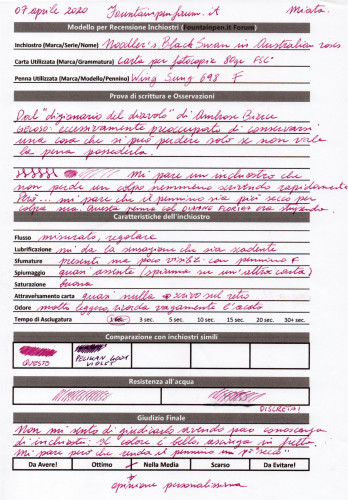 07 aprile 2020 Fountainpenforum.it Miata.
Modello per Recensione Inchiostri (Fountainpen.it Forum)
Inchiostro (Marca/Serie/Nome) Noodler's Black Swan in Australian roses
Carta Utilizzata (Marca/Grammatura) Carta per fotocopie 80gr
Penna Utilizzata (Marca/Modello/Pennino) Wing Sung 698 F
Prova di scrittura e Osservazioni
Dal "dizionario del diavolo" di Ambrose Bierce
Geloso: eccessivamente preoccupato di conservarsi
una cosa che si può perdere solo se non vale
la pena possederla.
Mi pare un inchiostro che
non perde un colpo nemmeno scrivendo rapidamente
Però... mi pare che il pennino sia più secco per
colpa sua. Questa penna col DIAMINE ora stupendo.
Caratteristiche dell'inchiostro
Flusso misurato, regolare
Lubrificazione mi dà la sensazione che sia scadente
Sfumature presenti ma poco visibili con pennino F
Spiumaggio quasi assente (spiuma su un'altra carta)
Saturazione buona
Attraversamento carta quasi nulla → scrivo sul retro
Odore molto leggero, ricorda vagamente l'aceto
Tempo di Asciugatura 1 sec. 3 sec. 5 sec. 10 sec. 15 sec. 20 sec. 30+ sec.
Comparazione con inchiostri simili
QUESTO PELIKAN 4001 VIOLET
Resistenza all'acqua
DISCRETA!
Giudizio Finale
Non mi sento di giudicarlo avendo poca conoscenza
di inchiostri. Il colore è bello, asciuga in fretta.
Mi pare però che renda il pennino un po' secco
Da Avere! Ottimo Nella Media Scarso Da Evitare!
opinione personalissima